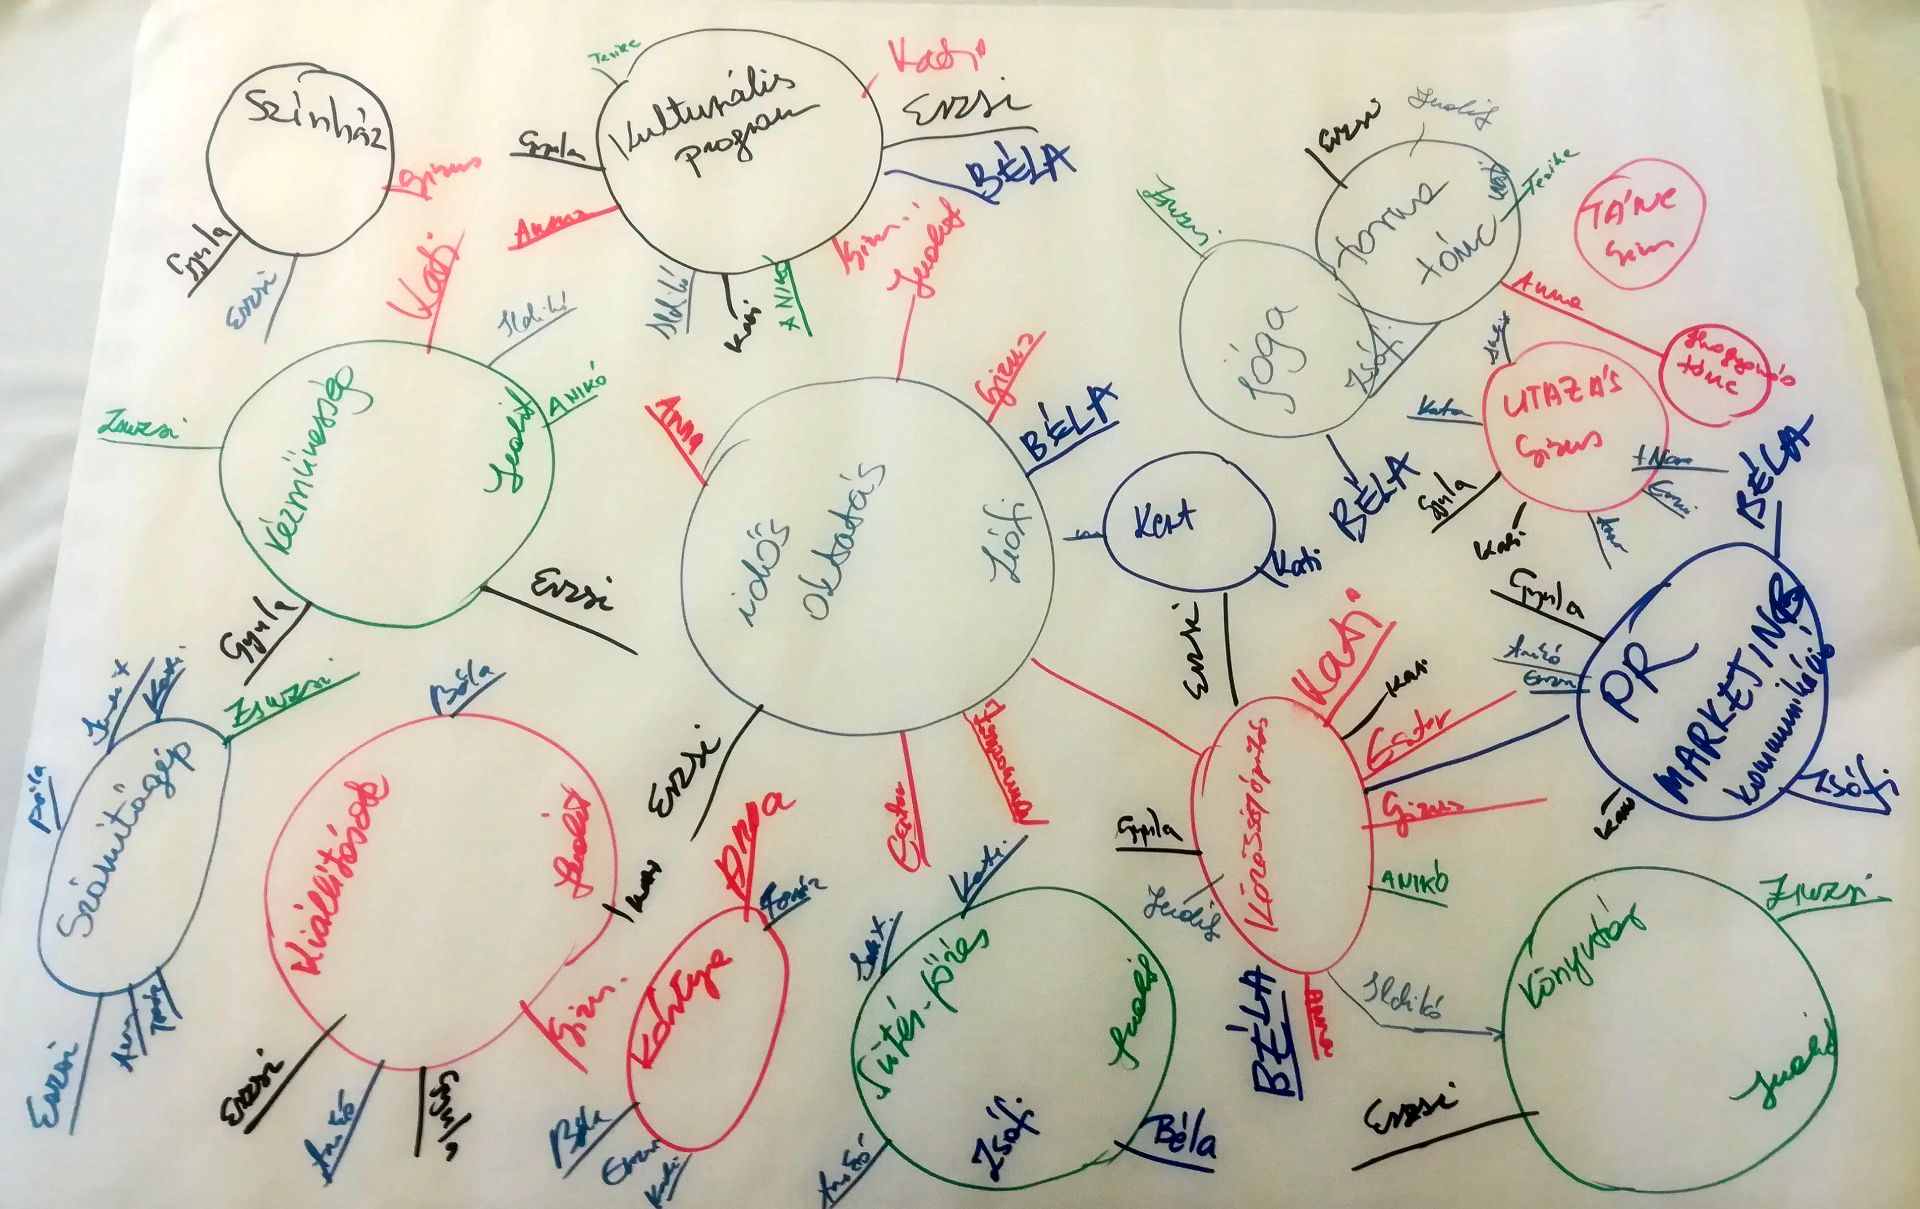 Színház
Gizus
Gyula
Erzsi
Terike
Kulturális
program
Kati
Erzsi
BÉLA
Gyula
Anna
Ildikó
Kati
ANIKÓ
Judit
Erzsi
Judit
torna
tánc
Terike
TÁNC
Gizus
Zsuzsi
jóga
Zsófi
BÉLA
Anna
tánc
UTAZÁS
Gizus
Kata
Gyula
Kati
Kati
Ildikó
ANIKÓ
Kézművesség
Judit
Zsuzsi
Gyula
Erzsi
Anna
Gizus
BÉLA
idős
oktatás
Zsófi
Erzsi
Eszter
Kert
Kati
Erzsi
BÉLA
Gyula
Anikó
PR
MARKETING
kommunikáció
Zsófi
Kati
Kati
Kati
Zsuzsi
Számítógép
Erzsi
Béla
Kiállítások
Judit
Kati
Gizus
Erzsi
Anikó
Gyula
Kártya
Béla
Kati
Kati
Sütés-főzés
Judit
Zsófi
Anikó
Béla
Kati
Kati
Eszter
Gizus
ANIKÓ
Közösségépítés
Gyula
Judit
BÉLA
Anna
Ildikó
Zsuzsi
Könyvtár
Judit
Erzsi